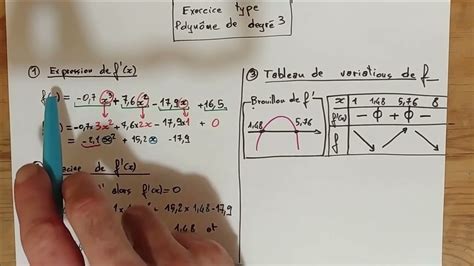 Exercice type
Polynôme de degré 3
① Expression de f'(x)
= -0,7 x³ + 7,6 x² - 17,9 x + 16,5
) = -0,7 x 3x² + 7,6 x 2x - 17,9 x 1 + 0
= -2,1 x² + 15,2 x - 17,9
de f'
alors f'(x) = 0
+ 15,2 x 1,48 - 17,9
1,48 et
③ Tableau de variations de f
Brouillon de f'
1,48 5,76
x 1 1,48 5,76 8
f'(x) - 0 + 0 -
f